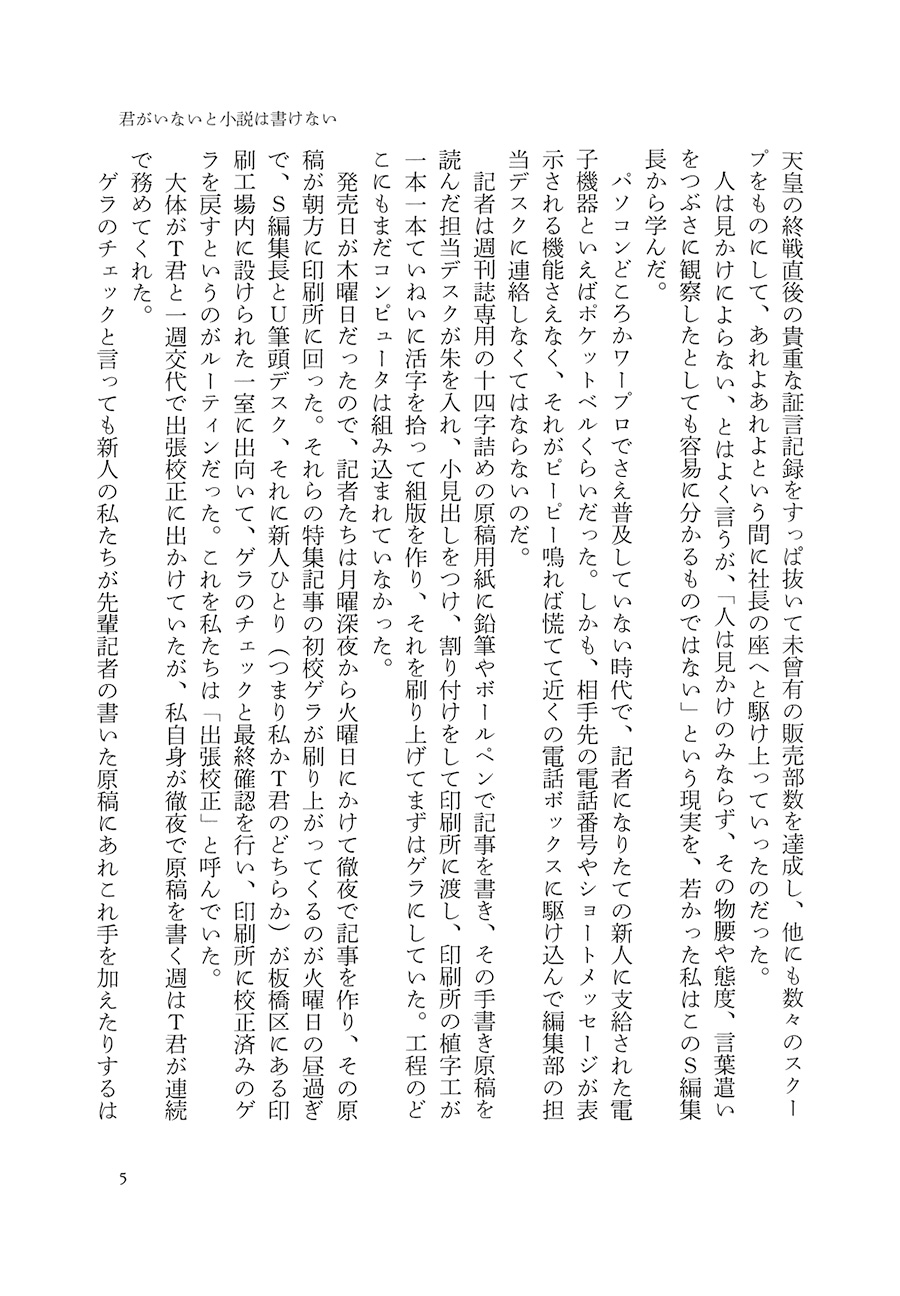 君がいないと小説は書けない
天皇の終戦直後の貴重な証言記録をすっぱ抜いて未曾有の販売部数を達成し、他にも数々のスクー
プをものにして、あれよあれよという間に社長の座へと駆け上っていったのだった。
　人は見かけによらない、とはよく言うが、「人は見かけのみならず、その物腰や態度、言葉遣い
をつぶさに観察したとしても容易に分かるものではない」という現実を、若かった私はこのＳ編集
長から学んだ。
　パソコンどころかワープロでさえ普及していない時代で、記者になりたての新人に支給された電
子機器といえばポケットベルくらいだった。しかも、相手先の電話番号やショートメッセージが表
示される機能さえなく、それがピーピー鳴れば慌てて近くの電話ボックスに駆け込んで編集部の担
当デスクに連絡しなくてはならないのだ。
　記者は週刊誌専用の十四字詰めの原稿用紙に鉛筆やボールペンで記事を書き、その手書き原稿を
読んだ担当デスクが朱を入れ、小見出しをつけ、割り付けをして印刷所に渡し、印刷所の植字工が
一本一本ていねいに活字を拾って組版を作り、それを刷り上げてまずはゲラにしていた。工程のど
こにもまだコンピュータは組み込まれていなかった。
　発売日が木曜日だったので、記者たちは月曜深夜から火曜日にかけて徹夜で記事を作り、その原
稿が朝方に印刷所に回った。それらの特集記事の初校ゲラが刷り上がってくるのが火曜日の昼過ぎ
で、Ｓ編集長とＵ筆頭デスク、それに新人ひとり（つまり私かＴ君のどちらか）が板橋区にある印
刷工場内に設けられた一室に出向いて、ゲラのチェックと最終確認を行い、印刷所に校正済みのゲ
ラを戻すというのがルーティンだった。これを私たちは「出張校正」と呼んでいた。
　大体がＴ君と一週交代で出張校正に出かけていたが、私自身が徹夜で原稿を書く週はＴ君が連続
で務めてくれた。
　ゲラのチェックと言っても新人の私たちが先輩記者の書いた原稿にあれこれ手を加えたりするは
5